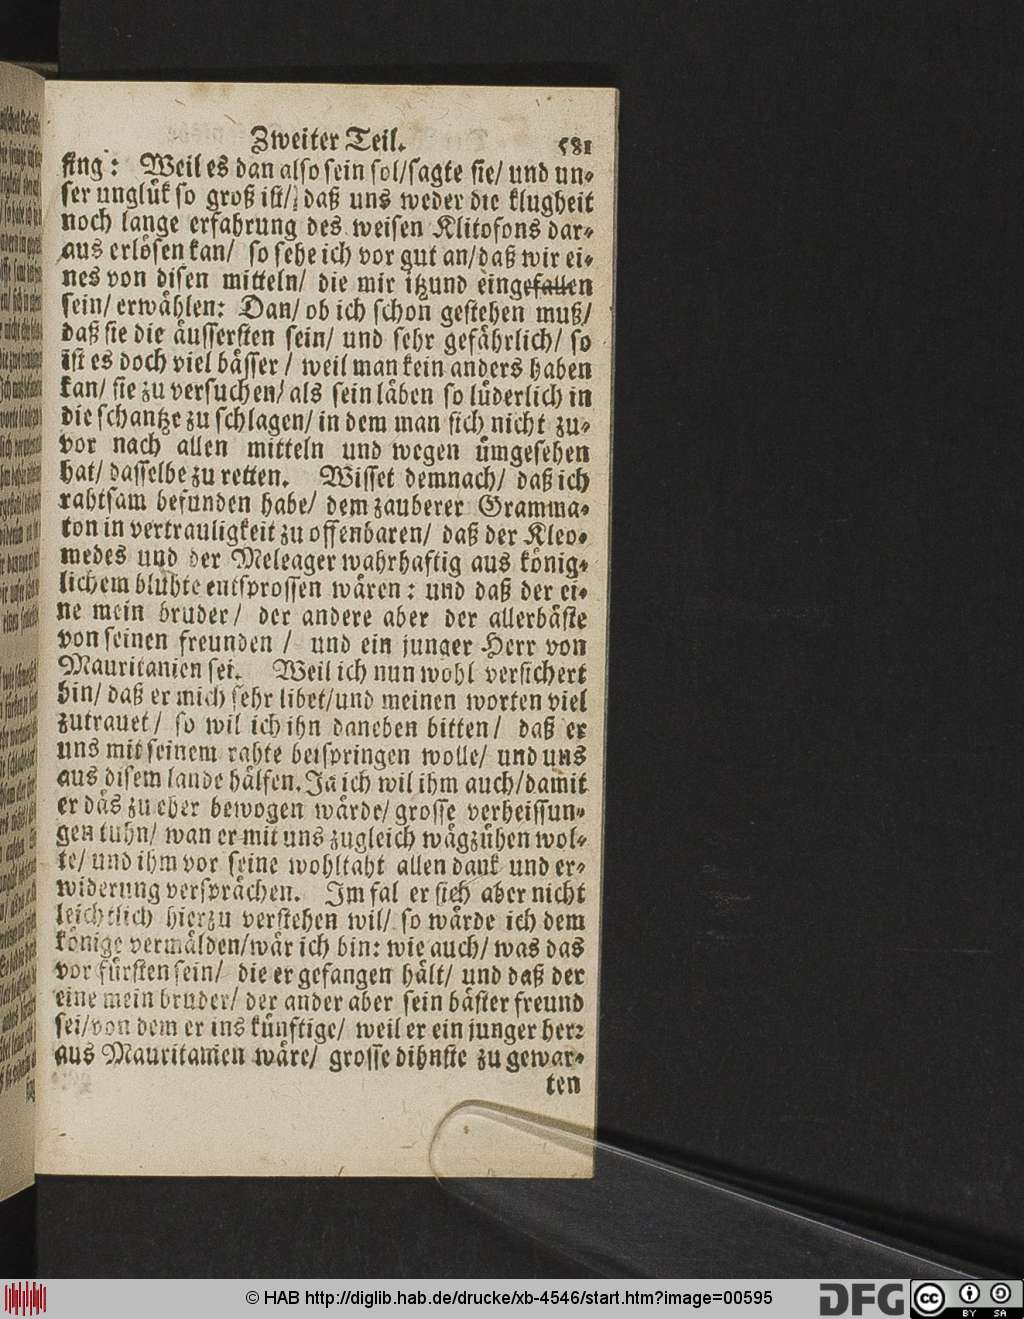 Zweiter Teil. 581
fing: Weil es dan also sein sol/sagte sie/ und un-
ser unglük so groß ist/ daß uns weder die klugheit
noch lange erfahrung des weisen Klitofons dar-
aus erlösen kan/ so sehe ich vor gut an/daß wir ei-
nes von disen mitteln/ die mir itzund eingefallen
sein/ erwählen: Dan/ ob ich schon gestehen muß/
daß sie die äussersten sein/ und sehr gefährlich/ so
ist es doch viel bässer/ weil man kein anders haben
kan/ sie zu versuchen/ als sein läben so lüderlich in
die schantze zu schlagen/ in dem man sich nicht zu-
vor nach allen mitteln und wegen ümgesehen
hat/ dasselbe zu retten. Wisset demnach/ daß ich
rahtsam befunden habe/ dem zauberer Gramma-
ton in vertrauligkeit zu offenbaren/ daß der Kleo-
medes und der Meleager wahrhaftig aus könig-
lichem bluhte entsprossen wären: und daß der ei-
ne mein bruder/ der andere aber der allerbäste
von seinen freunden/ und ein junger Herr von
Mauritanien sei. Weil ich nun wohl versichert
bin/ daß er mich sehr libet/und meinen worten viel
zutrauet/ so wil ich ihn daneben bitten/ daß er
uns mit seinem rahte beispringen wolle/ und uns
aus disem lande hälfen. Ja ich wil ihm auch/damit
er däs zu eher bewogen wärde/ grosse verheissun-
gen tuhn/ wan er mit uns zugleich wägzühen wol-
te/ und ihm vor seine wohltaht allen dank und er-
widerung versprächen. Im fal er sich aber nicht
leichtlich hierzu verstehen wil/ so wärde ich dem
könige vermälden/wär ich bin: wie auch/ was das
vor fürsten sein/ die er gefangen hält/ und daß der
eine mein bruder/ der ander aber sein bäster freund
sei/von dem er ins künftige/ weil er ein junger herr
aus Mauritanien wäre/ grosse dihnste zu gewar-
ten
© HAB http://diglib.hab.de/drucke/xb-4546/start.htm?image=00595
DFG
cc
BY SA